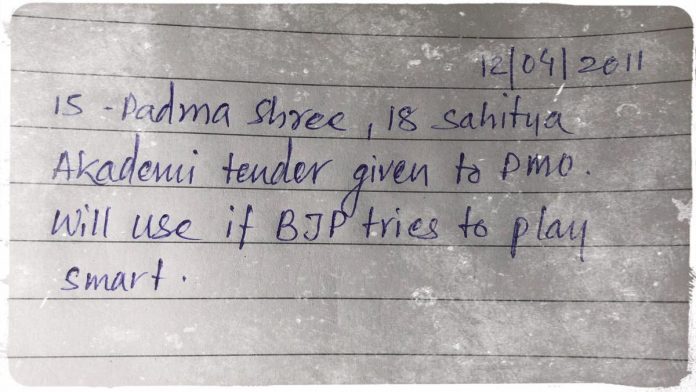 12/04/2011
15 - Padma Shree, 18 Sahitya
Akademi tender given to PMO.
Will use if BJP tries to play
smart.